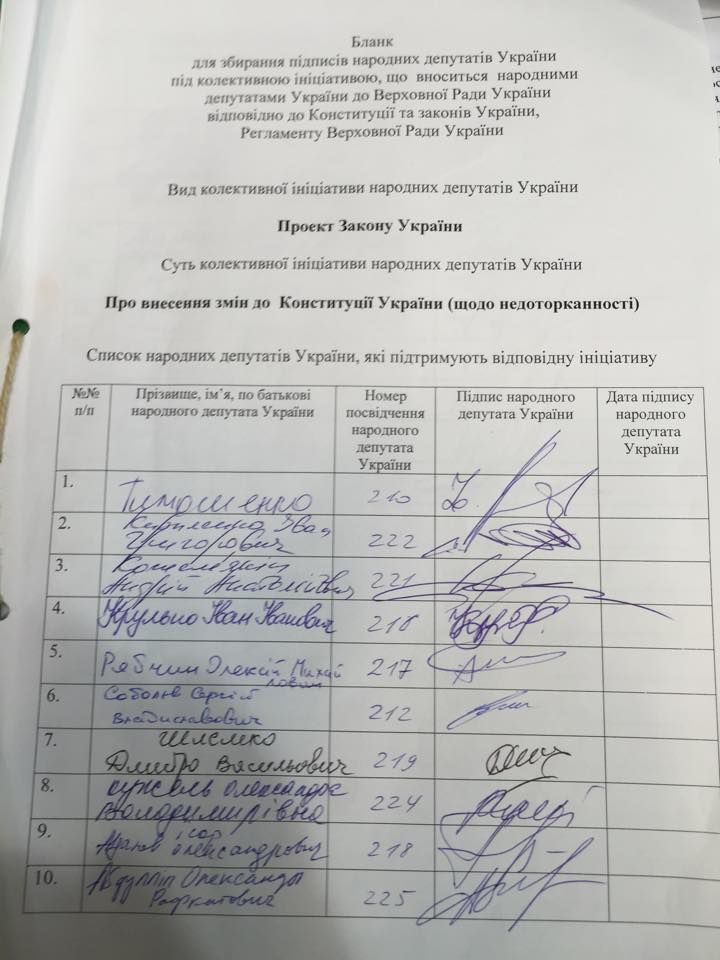 Бланк
для збирання підписів народних депутатів України
під колективною ініціативою, що вноситься народними
депутатами України до Верховної Ради України
відповідно до Конституції та законів України,
Регламенту Верховної Ради України
Вид колективної ініціативи народних депутатів України
Проект Закону України
Суть колективної ініціативи народних депутатів України
Про внесення змін до Конституції України (щодо недоторканності)
Список народних депутатів України, які підтримують відповідну ініціативу
№№ Прізвище, ім’я, по батькові Номер Підпис народного Дата підпису
п/п народного депутата України посвідчення депутата України народного
народного депутата
депутата України
України
1. Тимошенко 210
2. Кириленко Іван
Григорович 222
3. Андрій Анатолійович 221
4. Крулько Іван Іванович 216
5. Рябчин Олексій Михай
лович 217
6. Соболєв Сергій
Владиславович 212
7. Шлемко
Дмитро Васильович 219
8. Кужель Олександра
Володимирівна 224
9. Олександрович 218
10. Абдуллін Олександр
Рафкатович 225